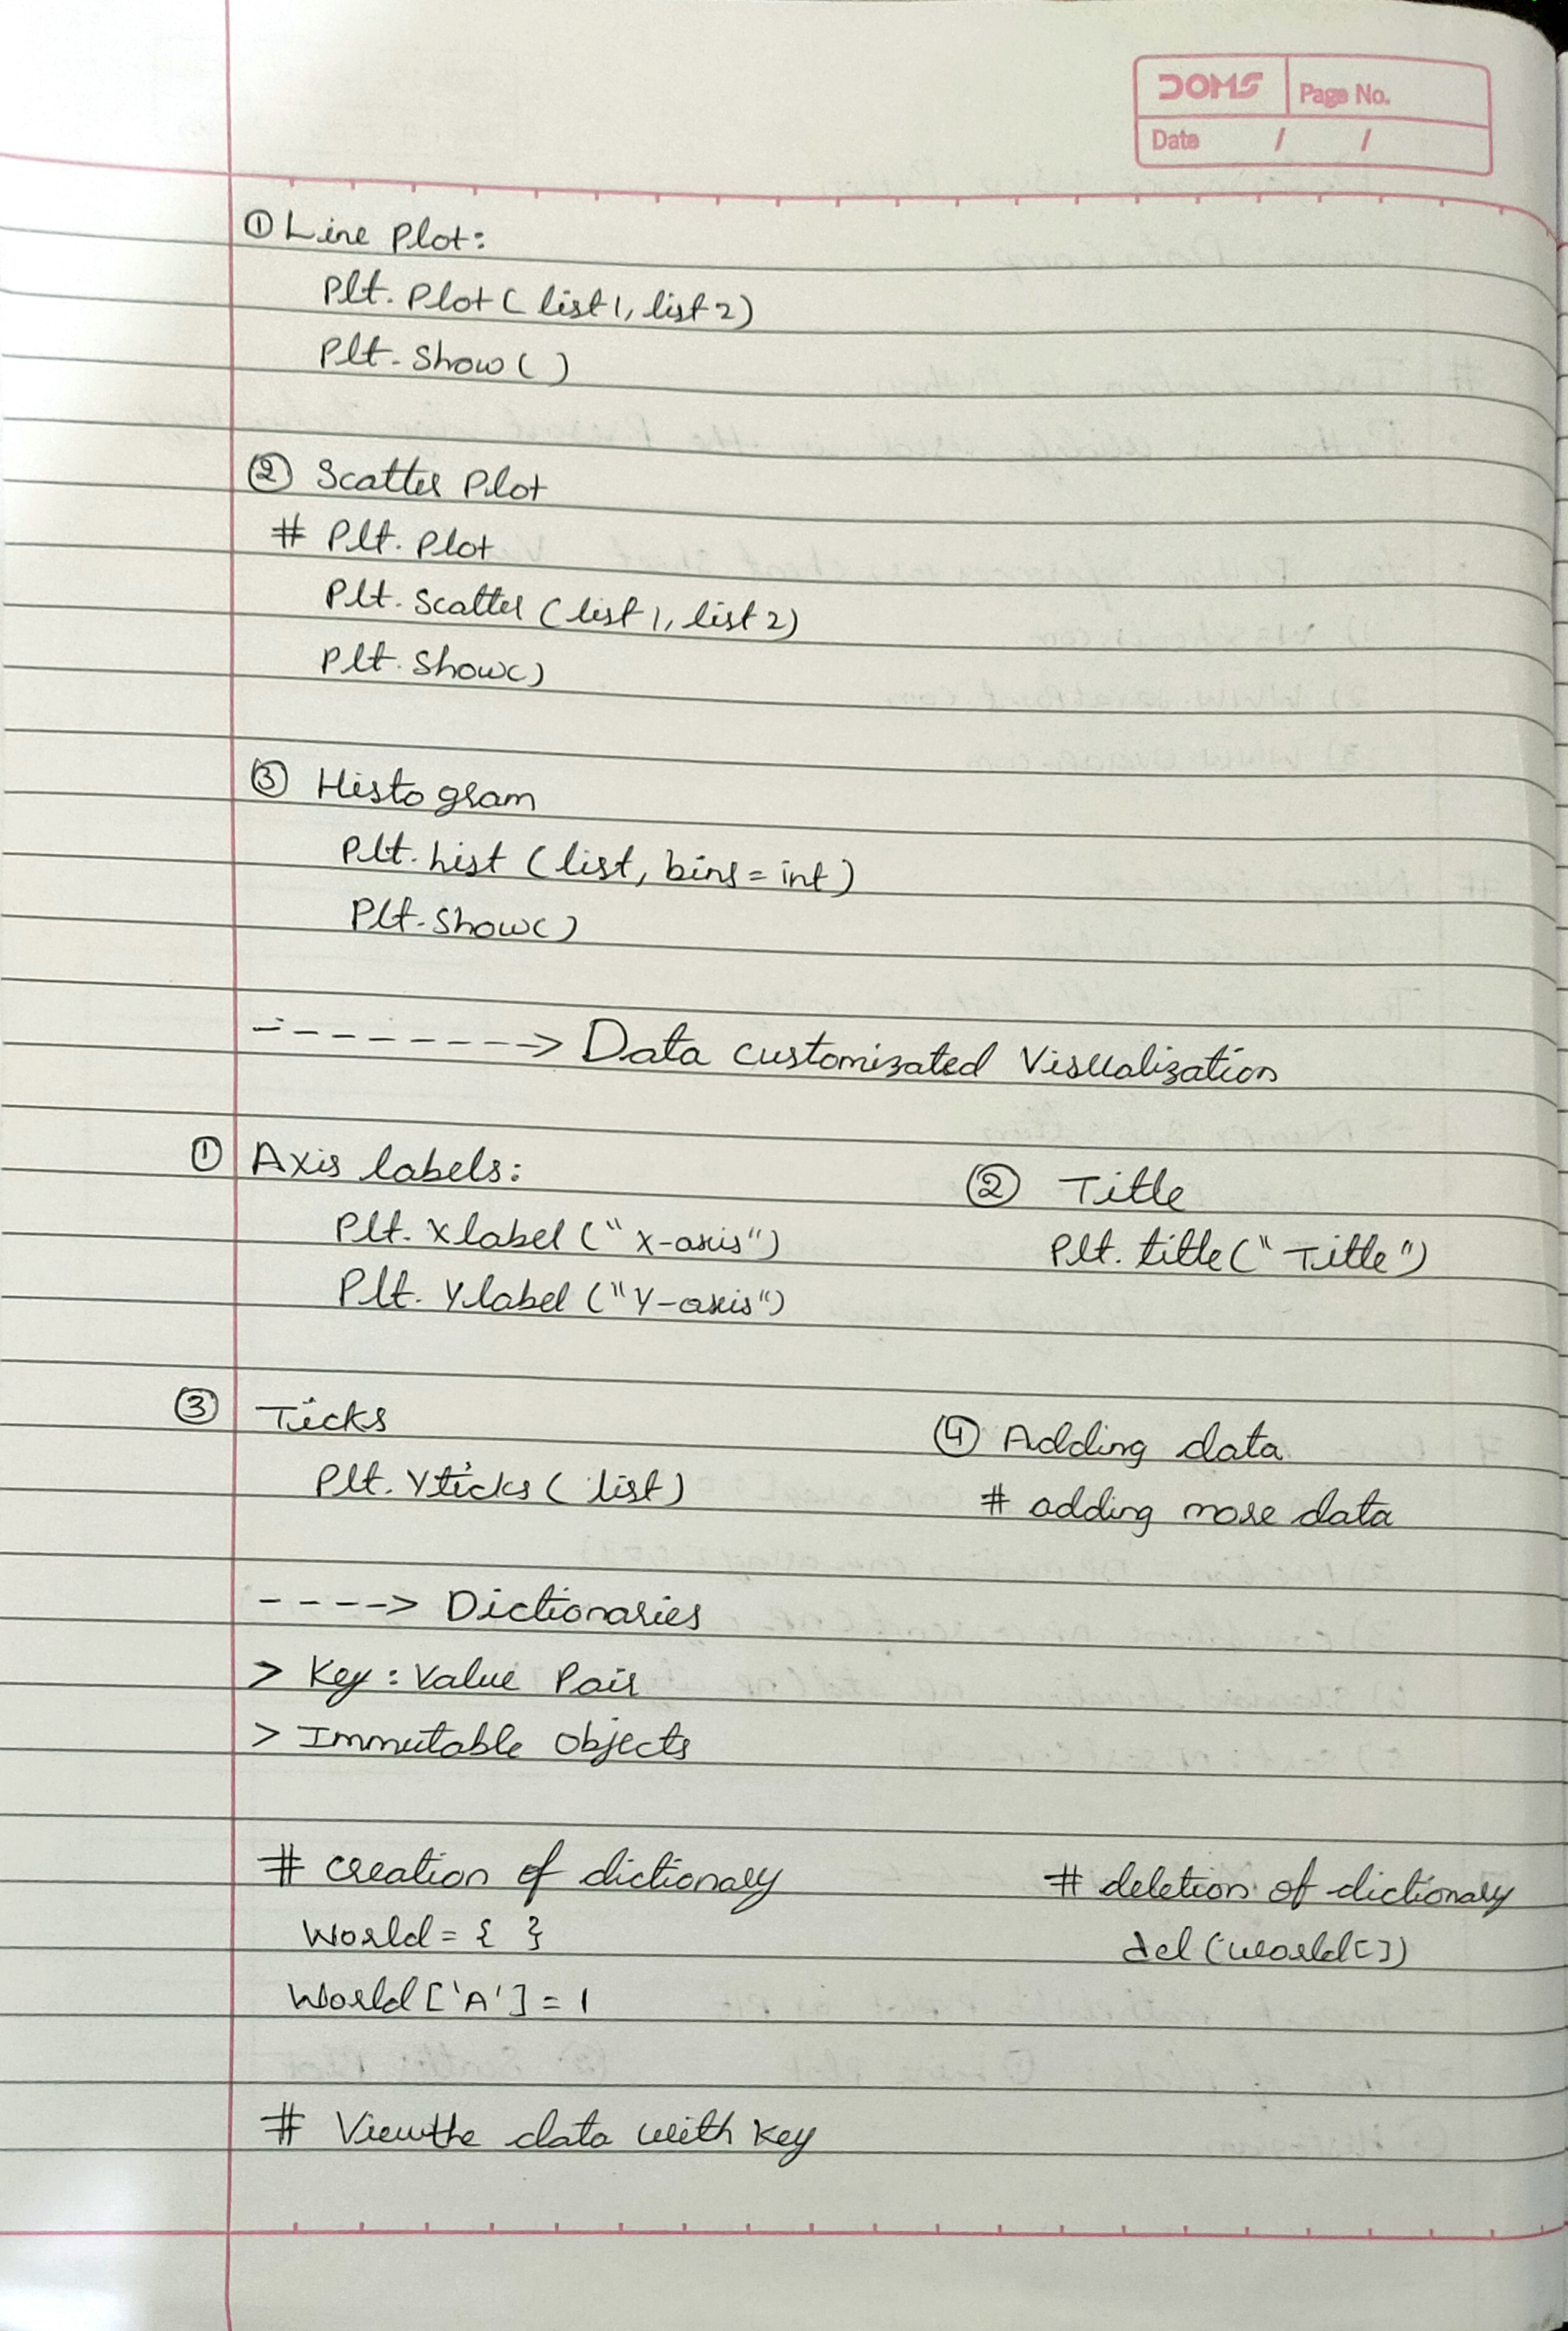 DOMS
Page No.
Date / /
① Line Plot:
Plt. Plot ( list 1, list 2)
Plt. Show ( )
② Scatter Plot
# Plt. Plot
Plt. Scatter ( list 1, list 2)
Plt. Show()
③ Histogram
Plt. hist ( list, bins = int )
Plt. Show()
- - - - - - - -> Data customizated Visualization
① Axis labels:
Plt. Xlabel (" X-axis")
Plt. Ylabel ("Y-axis")
② Title
Plt. title (" Title ")
③ Ticks
Plt. Yticks ( list )
④ Adding data
# adding more data
- - - -> Dictionaries
> Key : Value Pair
> Immutable Objects
# creation of dictionary
World = { }
World ['A'] = 1
# deletion of dictionary
del (world[])
# View the data with key